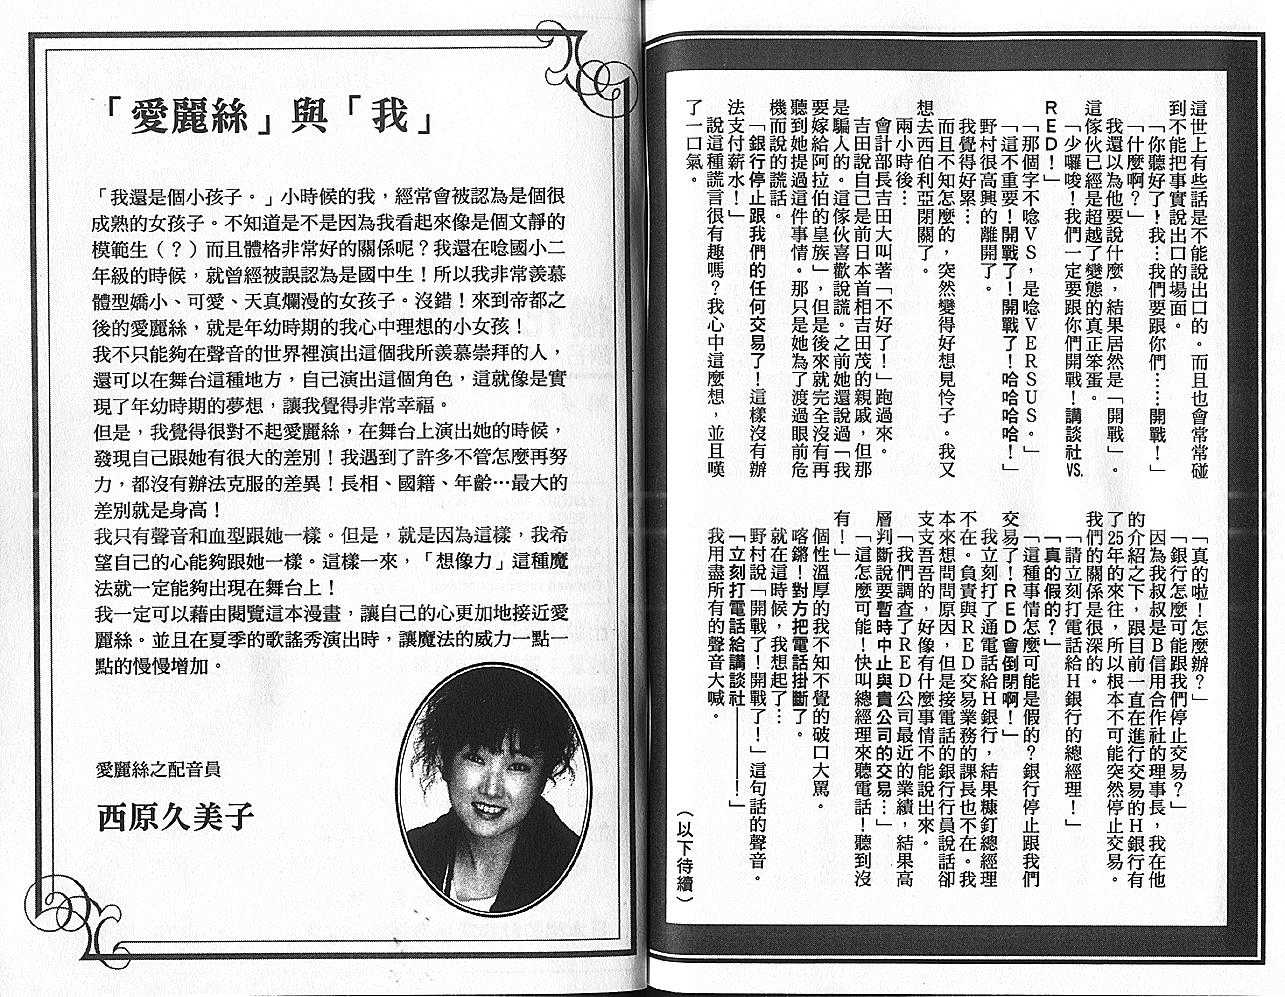 這世上有些話是不能說出口的。而且也會常常碰
到不能把事實說出口的場面。
「你聽好了！我…我們要跟你們……開戰！」
「什麼啊？」
我還以為他要說什麼，結果居然是「開戰」。
這傢伙已經是超越了變態的真正笨蛋。
「少囉唆！我們一定要跟你們開戰！講談社VS.
RED！」
「那個字不唸VS，是唸VERSUS。」
「這不重要！開戰了！開戰了！哈哈哈哈！」
野村很高興的離開了。
我覺得好累…
而且不知怎麼的，突然變得好想見怜子。我又
想去西伯利亞閉關了。
兩小時後…
會計部長吉田大叫著「不好了！」跑過來。
吉田說自己是前日本首相吉田茂的親戚，但那
是騙人的。這傢伙喜歡說謊。之前她還說過「我
要嫁給阿拉伯的皇族」，但是後來就完全沒有再
聽到她提過這件事情。那只是她為了渡過眼前危
機而說的謊話。
「銀行停止跟我們的任何交易了！這樣沒有辦
法支付薪水！」
說這種謊言很有趣嗎？我心中這麼想，並且嘆
了一口氣。
「真的啦！怎麼辦？」
「銀行怎麼可能跟我們停止交易？」
因為我叔叔是B信用合作社的理事長，我在他
的介紹之下，跟目前一直在進行交易的H銀行有
了25年的來往，所以根本不可能突然停止交易。
我們的關係是很深的。
「請立刻打電話給H銀行的總經理！」
「真的假的？」
「這種事情怎麼可能是假的？銀行停止跟我們
交易了！RED會倒閉啊！」
我立刻打了通電話給H銀行，結果糠釘總經理
不在。負責與RED交易業務的課長也不在。我
本來想問問原因，但是接電話的銀行行員說話卻
支支吾吾的，好像有什麼事情不能說出來。
「我們調查了RED公司最近的業績，結果高
層判斷說要暫時中止與貴公司的交易…」
「這怎麼可能！快叫總經理來聽電話！聽到沒
有！」
個性溫厚的我不知不覺的破口大罵。
喀鏘！對方把電話掛斷了。
就在這時候，我想起了…
野村說「開戰了！開戰了！」這句話的聲音。
「立刻打電話給講談社————！」
我用盡所有的聲音大喊。
（以下待續）
「愛麗絲」與「我」
「我還是個小孩子。」小時候的我，經常會被認為是個很
成熟的女孩子。不知道是不是因為我看起來像是個文靜的
模範生（？）而且體格非常好的關係呢？我還在唸國小二
年級的時候，就曾經被誤認為是國中生！所以我非常羨慕
體型嬌小、可愛、天真爛漫的女孩子。沒錯！來到帝都之
後的愛麗絲，就是年幼時期的我心中理想的小女孩！
我不只能夠在聲音的世界裡演出這個我所羨慕崇拜的人，
還可以在舞台這種地方，自己演出這個角色，這就像是實
現了年幼時期的夢想，讓我覺得非常幸福。
但是，我覺得很對不起愛麗絲，在舞台上演出她的時候，
發現自己跟她有很大的差別！我遇到了許多不管怎麼再努
力，都沒有辦法克服的差異！長相、國籍、年齡…最大的
差別就是身高！
我只有聲音和血型跟她一樣。但是，就是因為這樣，我希
望自己的心能夠跟她一樣。這樣一來，「想像力」這種魔
法就一定能夠出現在舞台上！
我一定可以藉由閱覽這本漫畫，讓自己的心更加地接近愛
麗絲。並且在夏季的歌謠秀演出時，讓魔法的威力一點一
點的慢慢增加。
愛麗絲之配音員
西原久美子